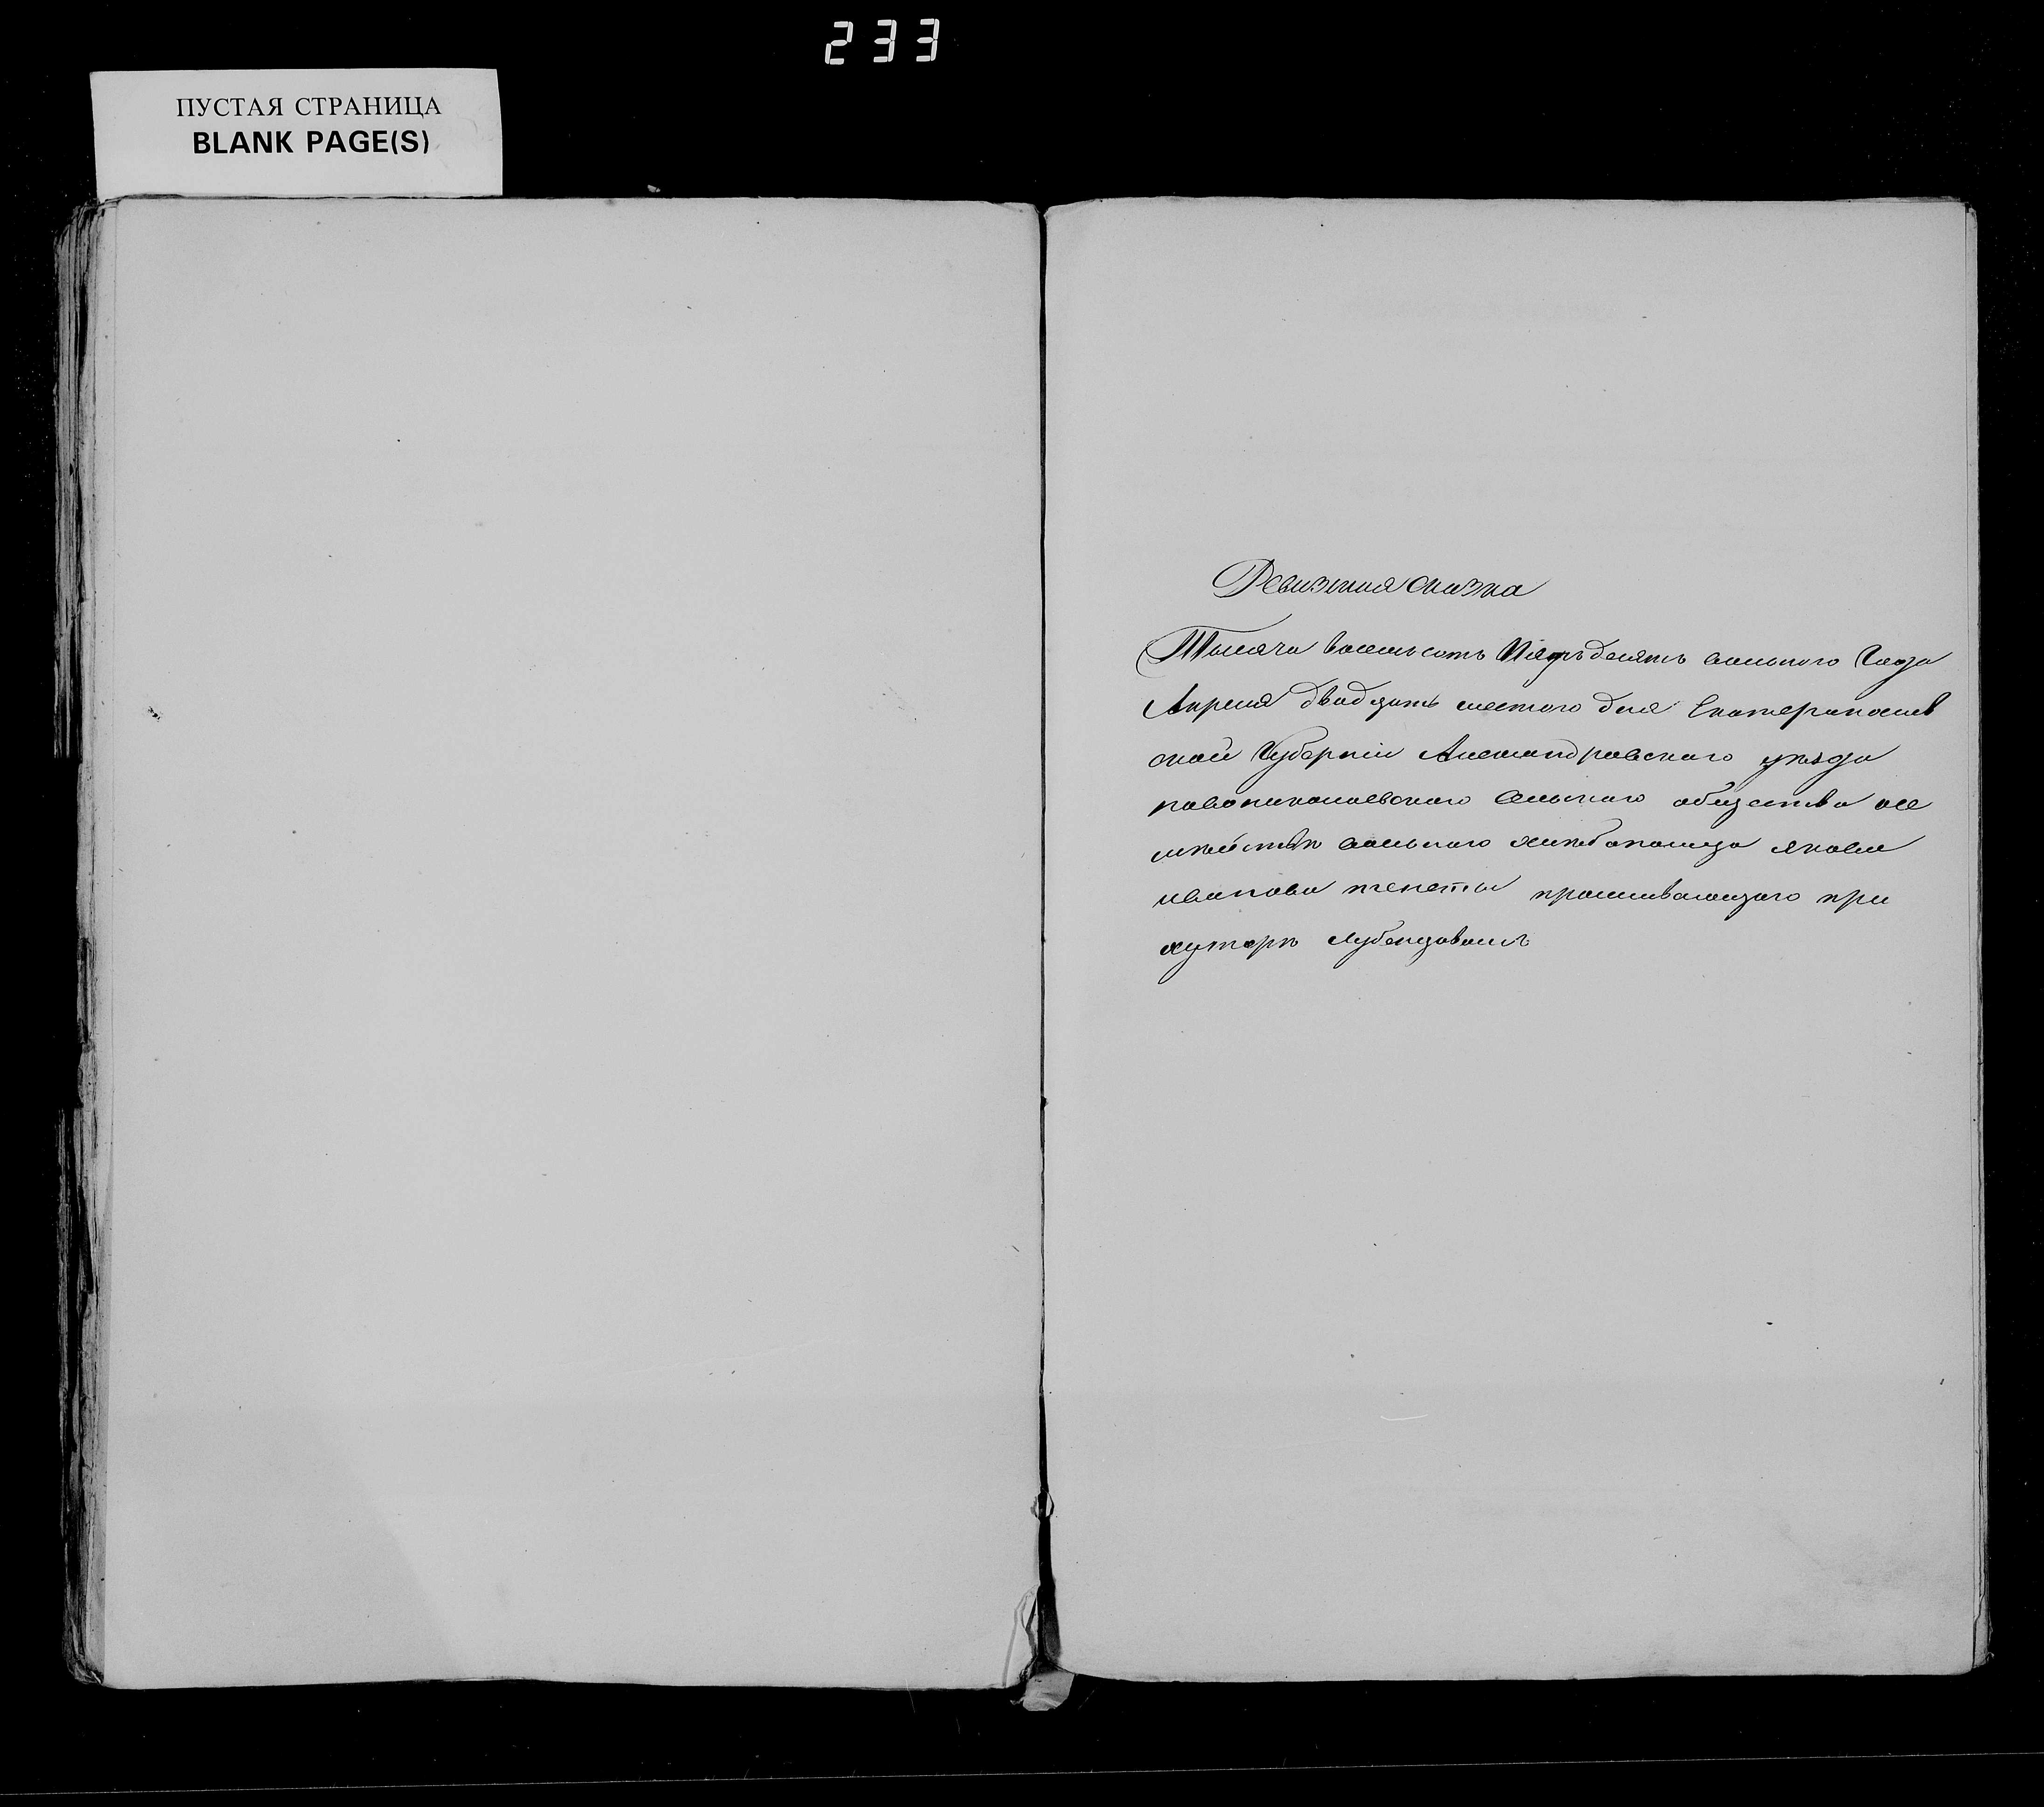 233
ПУСТАЯ СТРАНИЦА
BLANK PAGE(S)
Ревизская сказка
Тысяча восемьсотъ Пядьдесятъ осьмого Года
Апреля двадцать шестого дня Екатеринослав
ской Губерніи Александровского уѣзда
новониколаевского сельского общества о се
мѣйствѣ вольного хлѣбопашца якова
иванова проживающего при
хуторѣ